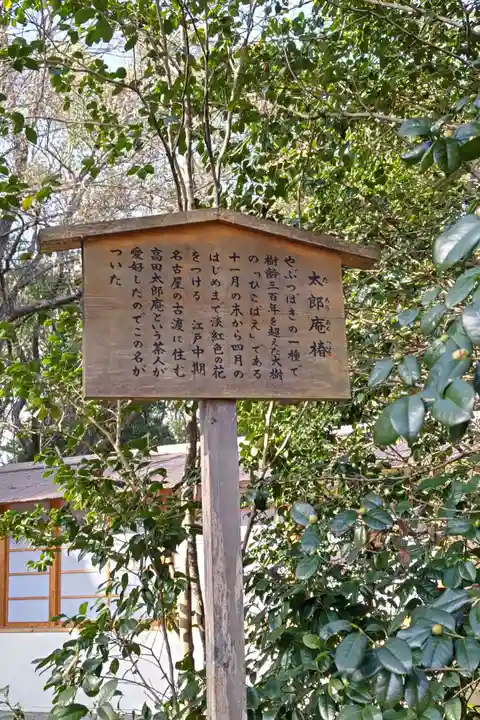 太郎庵椿
やぶつばきの一種で
樹齢三百年を超えた大樹
の「ひこばえ」である
十一月の末から四月の
はじめまで淡紅色の花
をつける 江戸中期
名古屋の古渡に住む
高田太郎庵という茶人が
愛好したのでこの名が
ついた